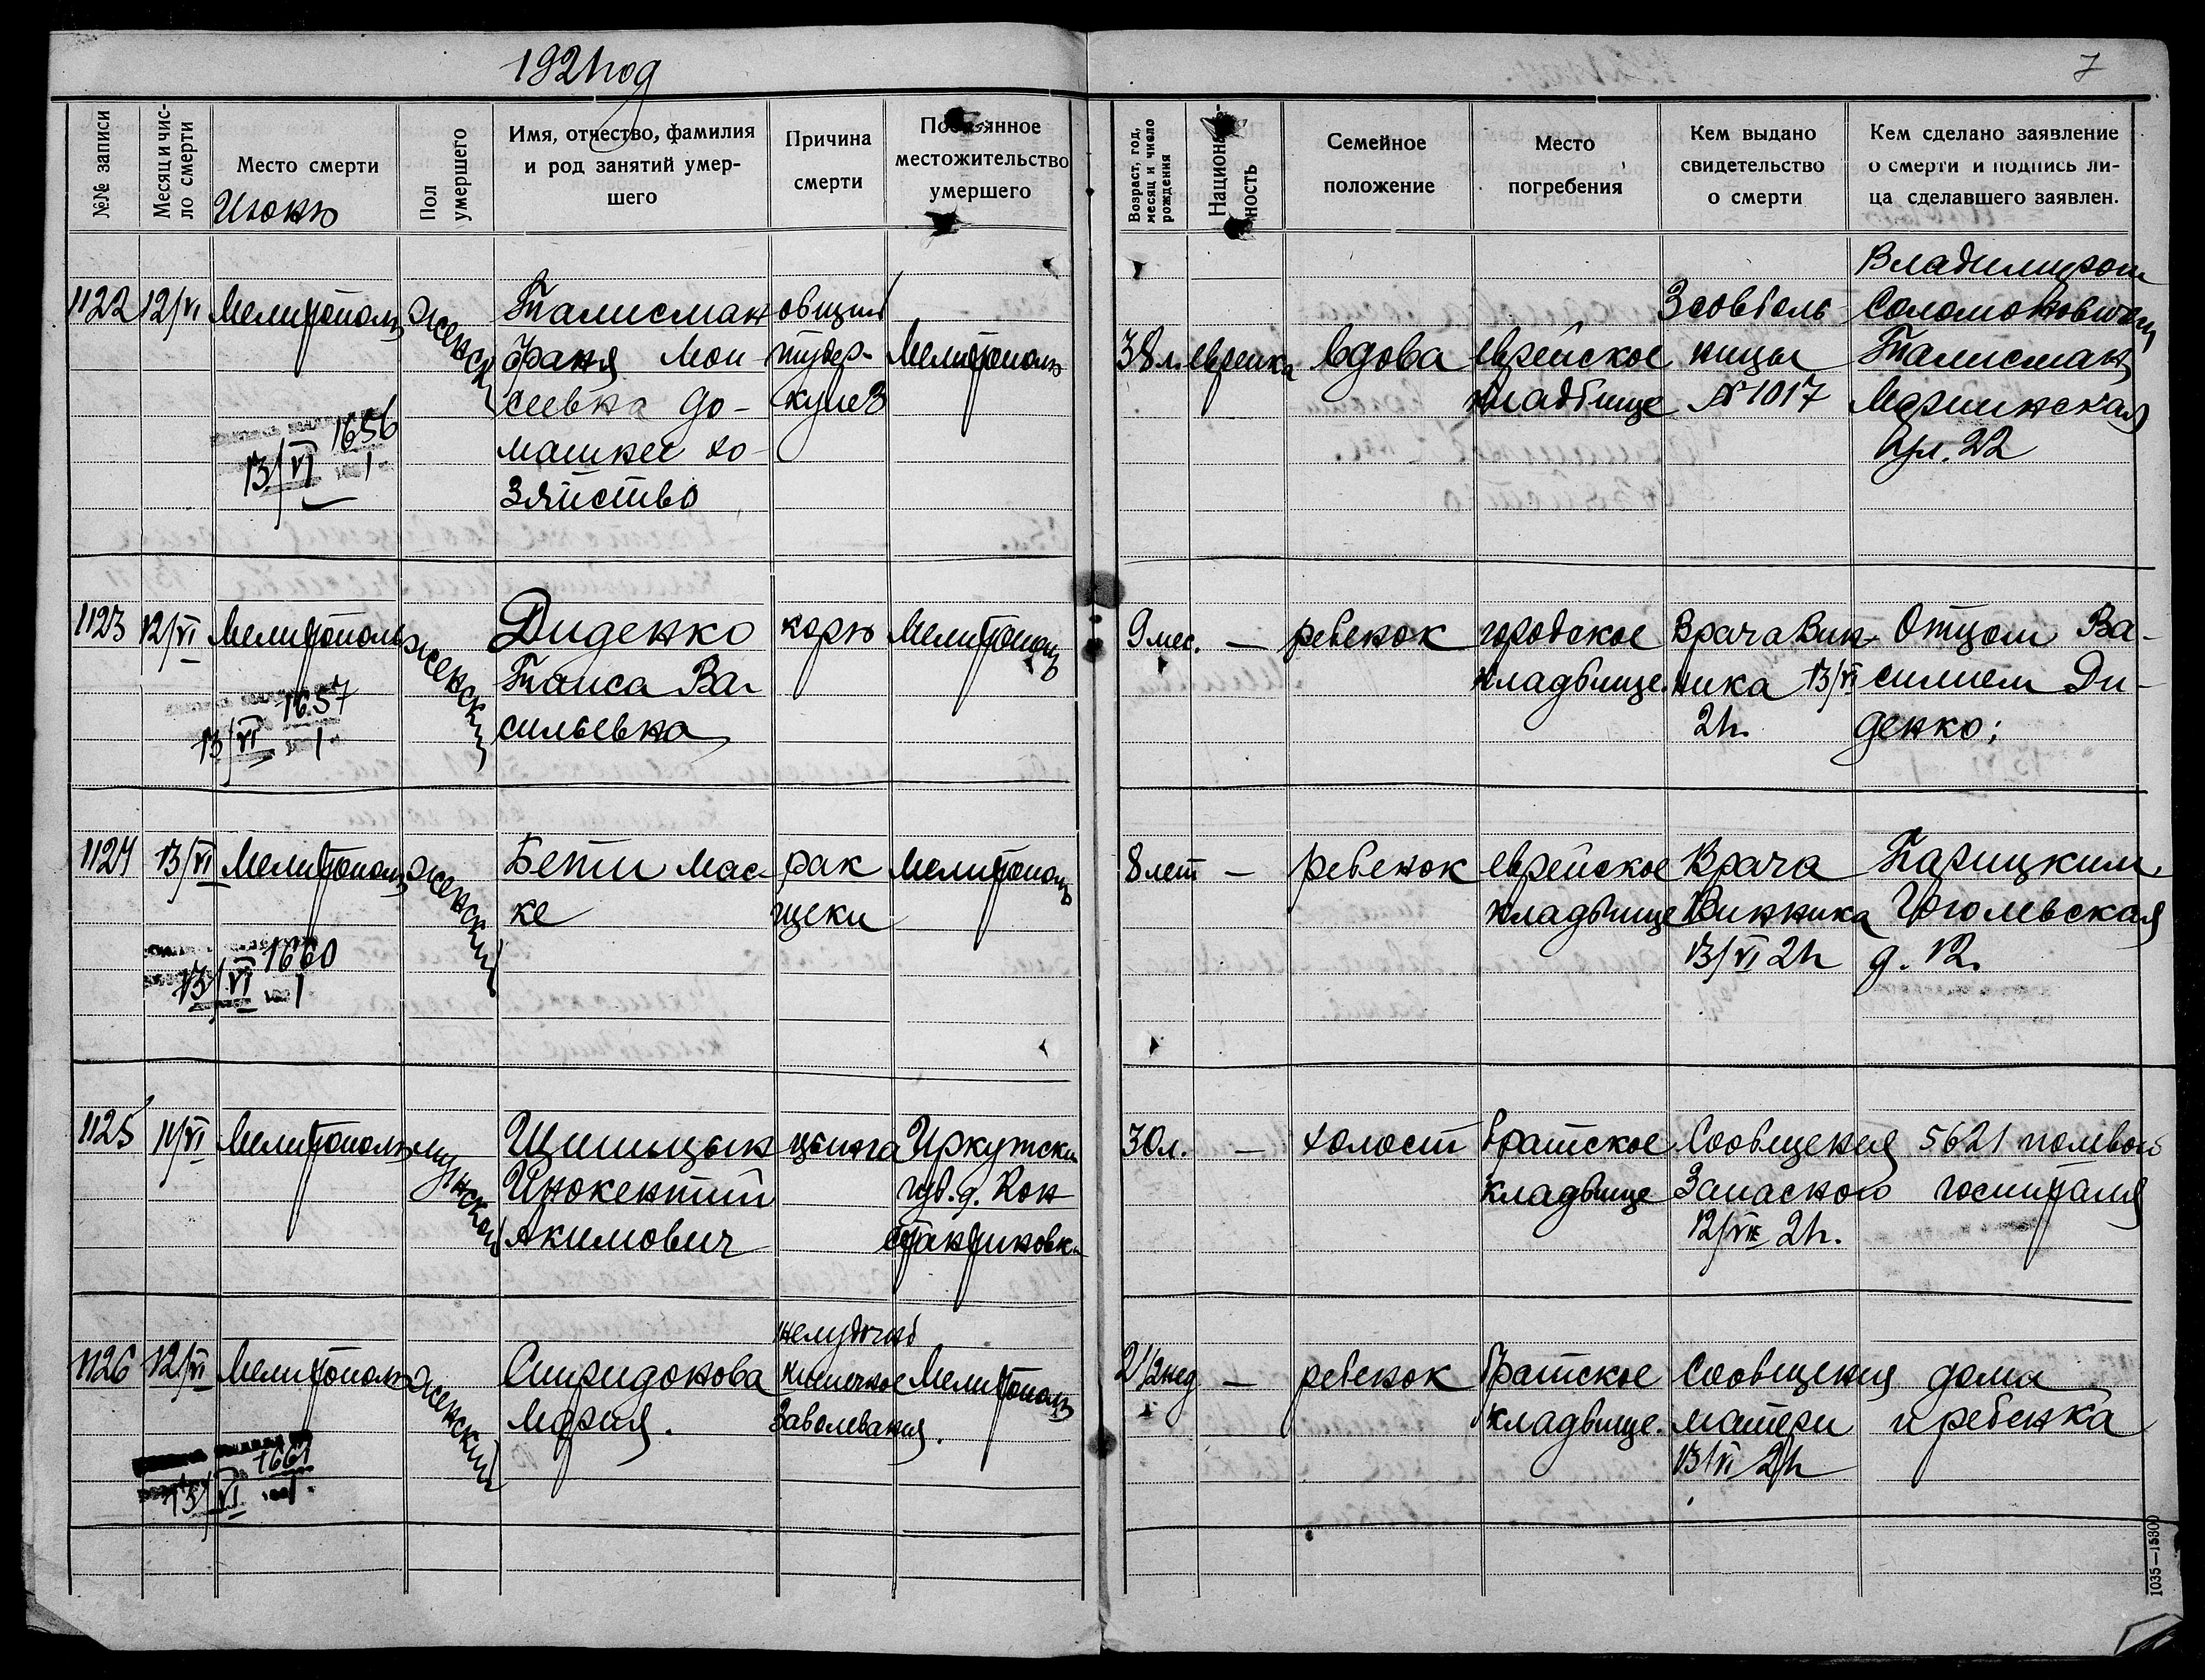 1921 год
7
№№ записи
Месяц и число смерти
Место смерти
Июнь
Пол умершего
Имя, отчество, фамилия
и род занятий умер-
шего
Причина
смерти
местожительство
умершего
Возраст, год,
месяц и число
рождения
Семейное
положение
Место
погребения
Кем выдано
свидетельство
о смерти
Кем сделано заявление
о смерти и подпись ли-
ца сделавшего заявлен.
1122
12/VI
Мелитополь
женск
Талисман
Фаня Мои
сеевна до-
машнее хо-
зяйство
общий
тубер-
кулез
Мелитополь
38 л.
еврейка
вдова
еврейское
кладбище
3 совболь
ницы
№ 1017
Владимиром
Соломоновичем
Талисман
Мариинская
ул. 22
1656
13/VI
1123
12/VI
Мелитополь
женский
Диденко
Таиса Ва-
сильевна
корь
Мелитополь
9 мес.
—
ребенок
городское
кладбище.
Врача Вин-
ника 13/VI
21г.
Отцом Ва-
силием Ди-
денко;
1657
13/VI
1124
13/VI
Мелитополь
женский
Бети Мас-
ке
рак
щеки
Мелитополь
8 лет
—
ребенок
еврейское
кладбище
Врача
Винника
13/VI 21г
Тарицким
Гоголевская
д. 12.
1660
13/VI
1125
11/VI
Мелитополь
мужской
Шишицын
Инокентий
Акимович
цынга
Иркутски
губ. д. Кон
стантиновк
30 л.
—
холост
братское
кладбище
Сообщения
Запасного
12/VI 21г.
5621 полевой
госпиталя
1126
12/VI
Мелитополь
женский
Спиридонова
Мария.
желудочно
кишечное
заболевания.
Мелитополь
2 1/2 нед
—
ребенок
братское
кладбище.
Сообщения
матери
13/VI 21г
дома
и ребенка
1661
13/VI
1035—15300